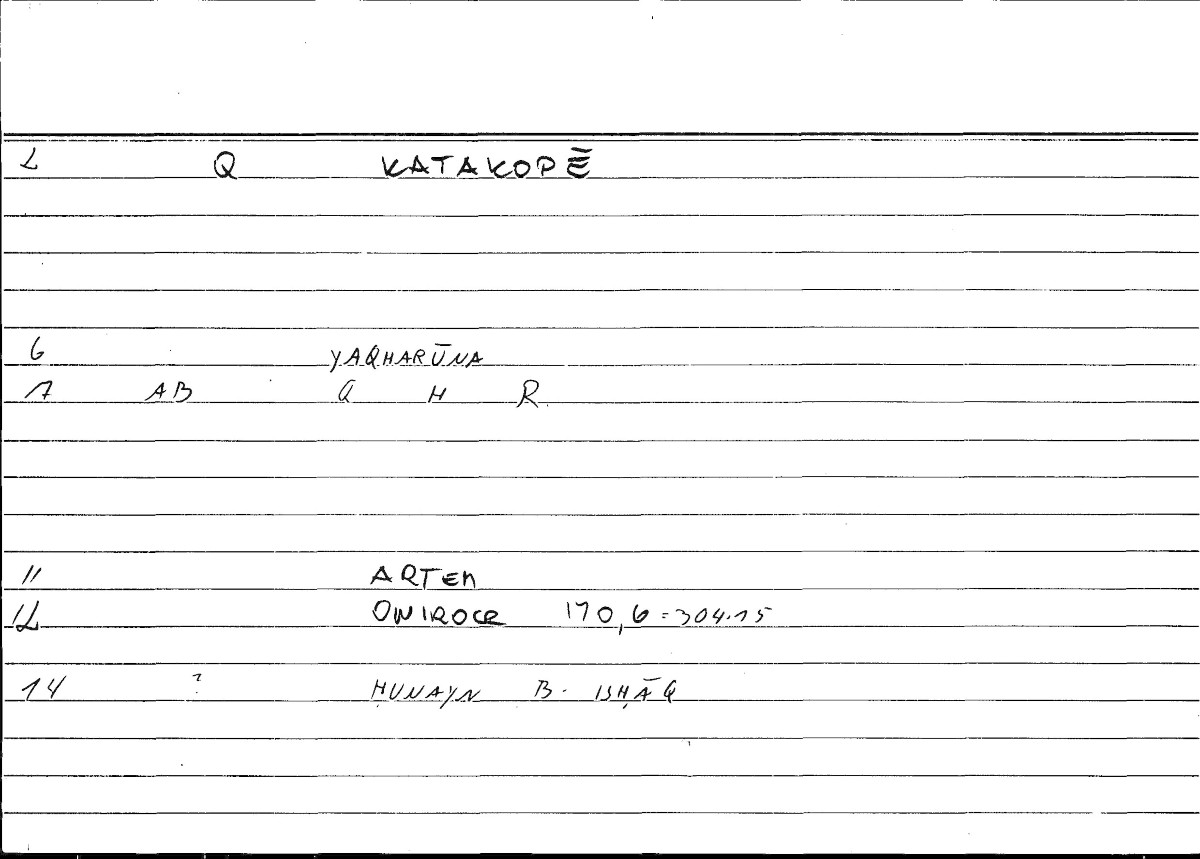 2 Q KATAKOPĒ
6 YAQHARŪNA
7 AB Q H R
11 ARTEM
12 ONIROCR 170,6=304.15
14 ? ḤUNAYN B. ISḤĀQ